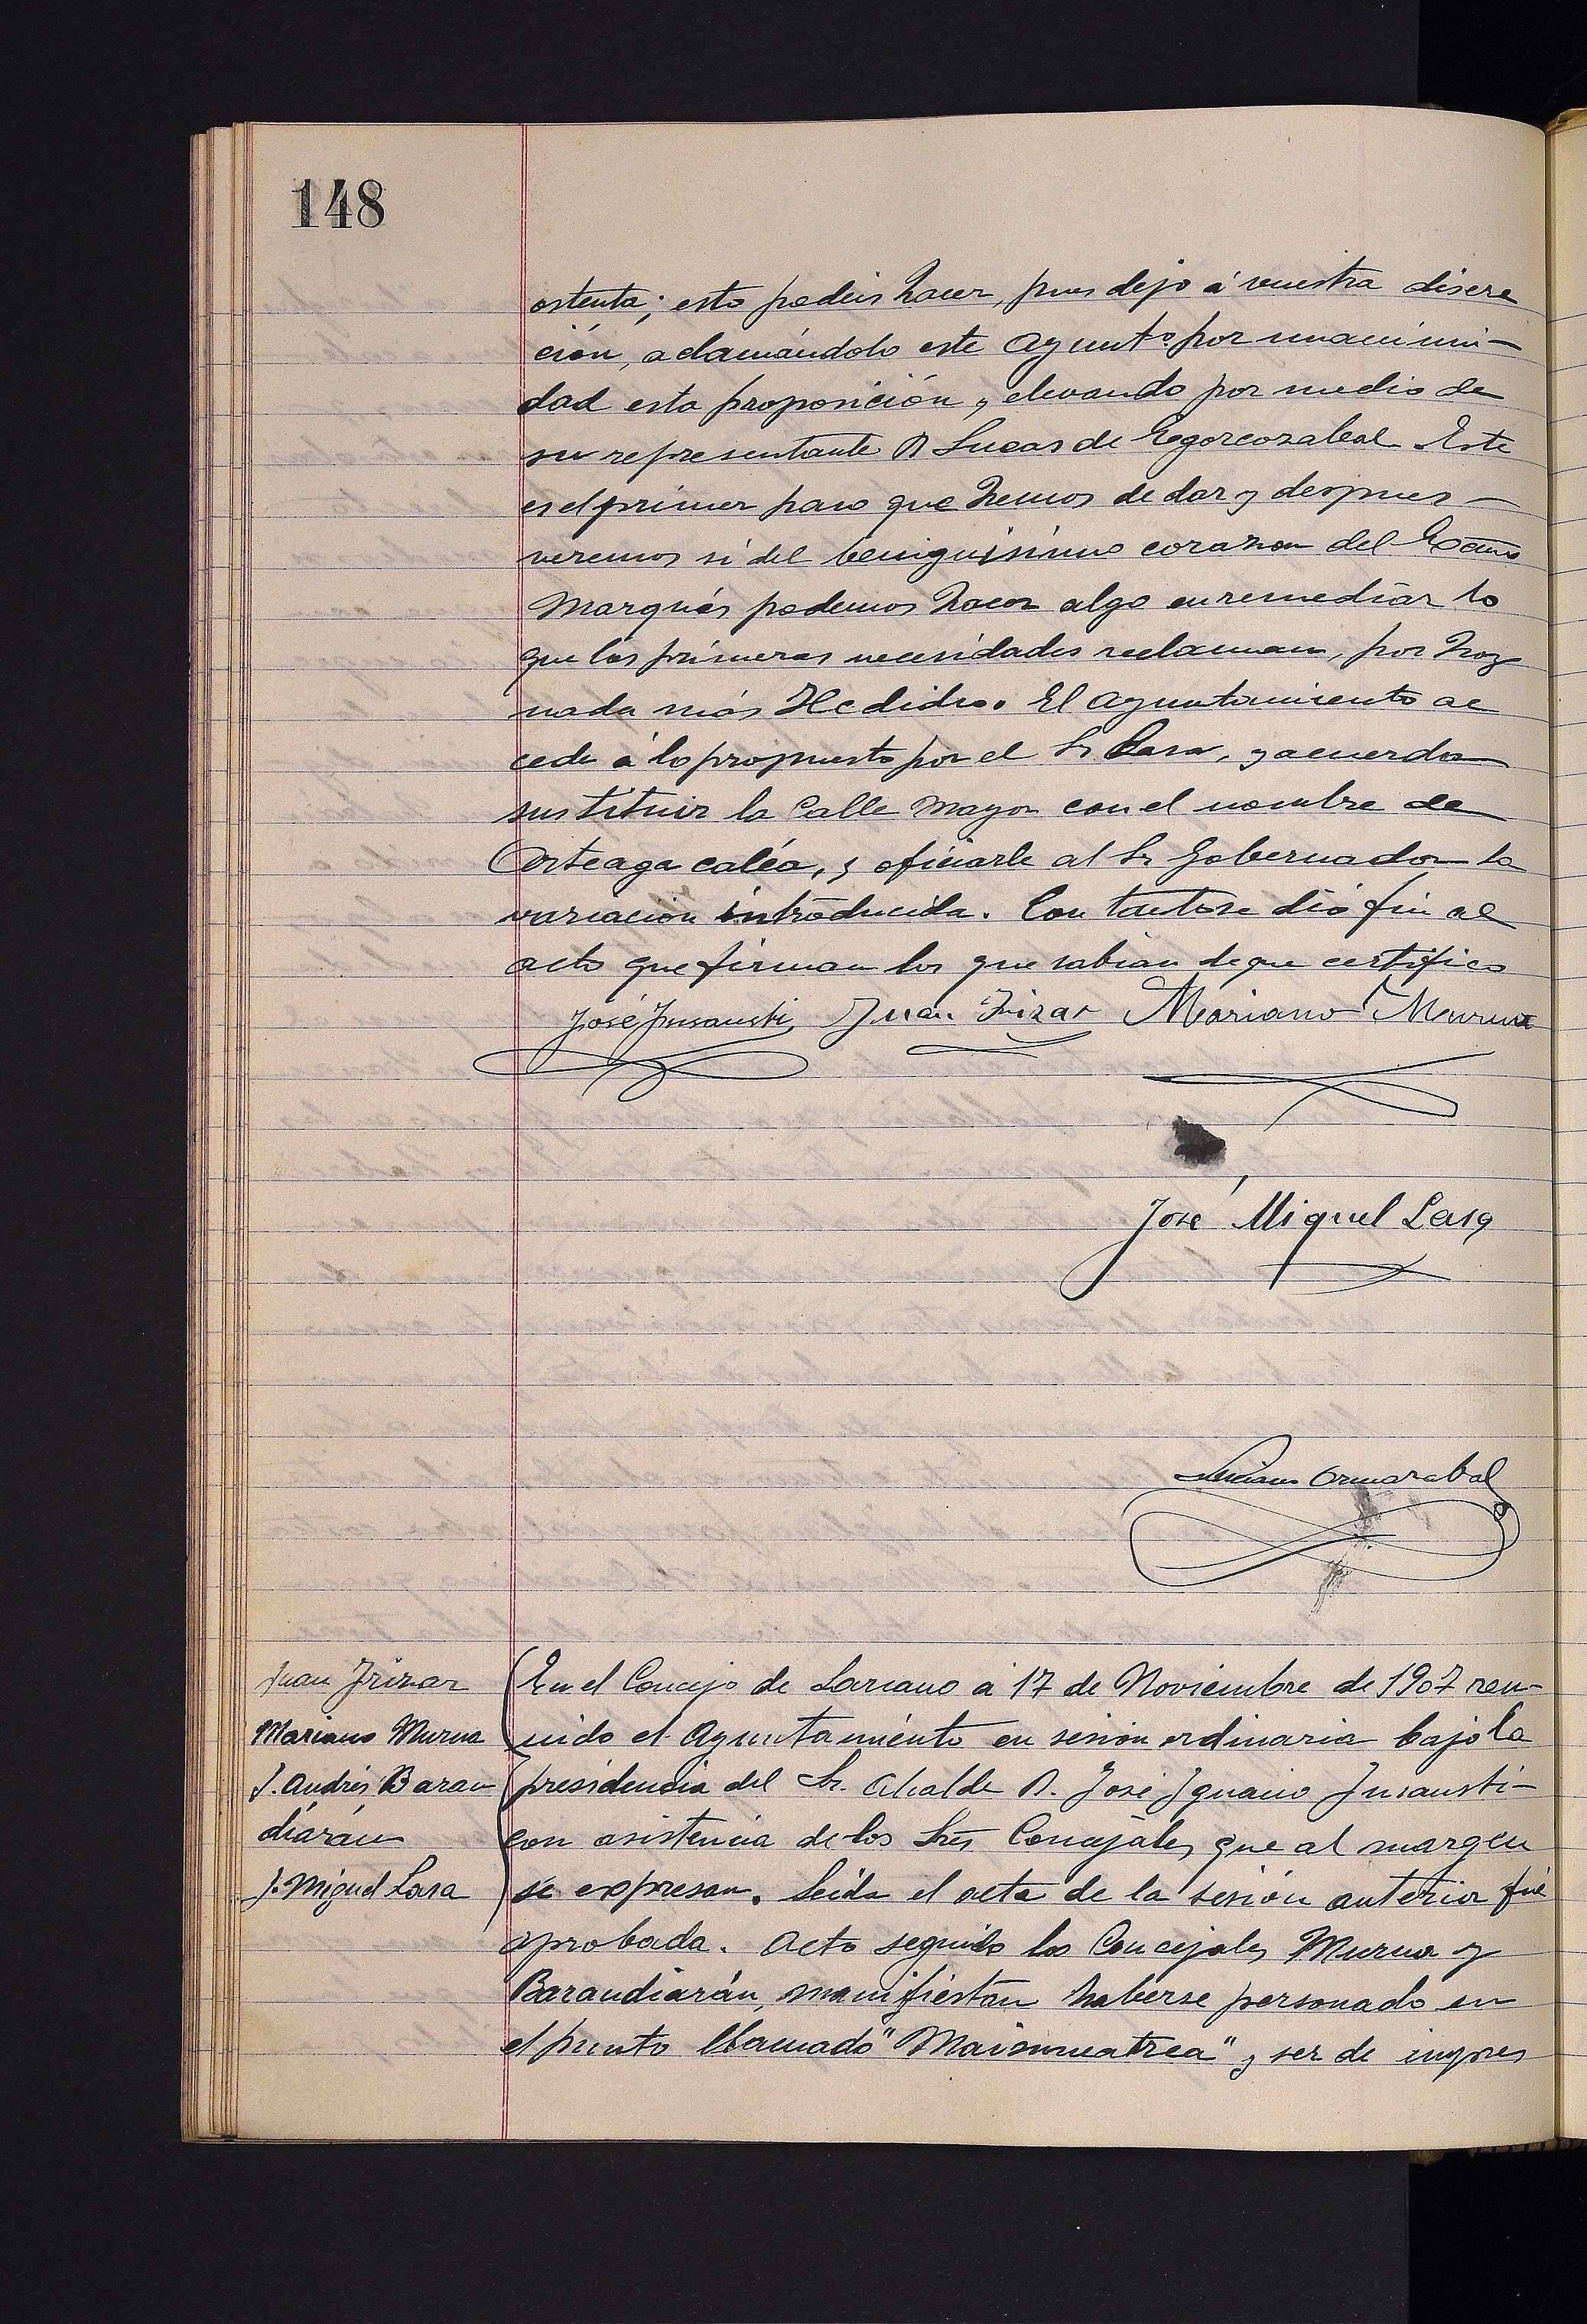 148
ostenta; esto podeis hacer, pues dejo á vuestra discre
ción, aclamándolo este Ayuntº por unanimi-
dad esta proposición, elevando por medio de
su representante D Lucas de Egorcozabal Este
es el primer paso que hemos de dar y despues -
veremos si del beniguisimo corazon del Excmo
Marqués podemos hacer algo en remediar lo
que las primeras necesidades reclaman, por hoy
nada más He dicho. El Ayuntamiento ac
cede á lo propuesto por el Sr Lasa, y acuerda
sustituir la Calle Mayor con el nombre de
Arteaga caléa, y oficiarle al Sr Gobernador la
variación introducida. Con tanto se dió fin al
acto que firman los que sabian de que certifico
José Insausti Juan Irizar Mariano Murua
José Miguel Lasa
Luciano Ormazabal
Juan Irizar
Mariano Murua
J. Andrés Baran
diárán
J. Miguel Lasa
En el Concejo de Larcano á 17 de Noviembre de 1907 reu-
nido el Ayuntamiento en sesion ordinaria bajo la
presidencia del Sr. Alcalde D. José Ignacio Insausti-
con asistencia de los Sres Concejales que al margen
se expresan. Leida el acta de la sesión anterior fué
aprobada. Acto seguido los Concejales Murua y
Barandiarán, manifiestan haberse personado en
el punto llamado " " y ser de impres